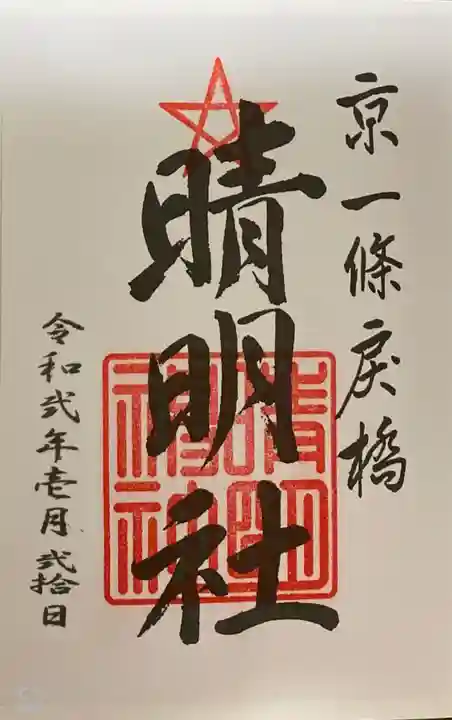 京一條戻橋
晴明社
令和弐年壱月弐拾日